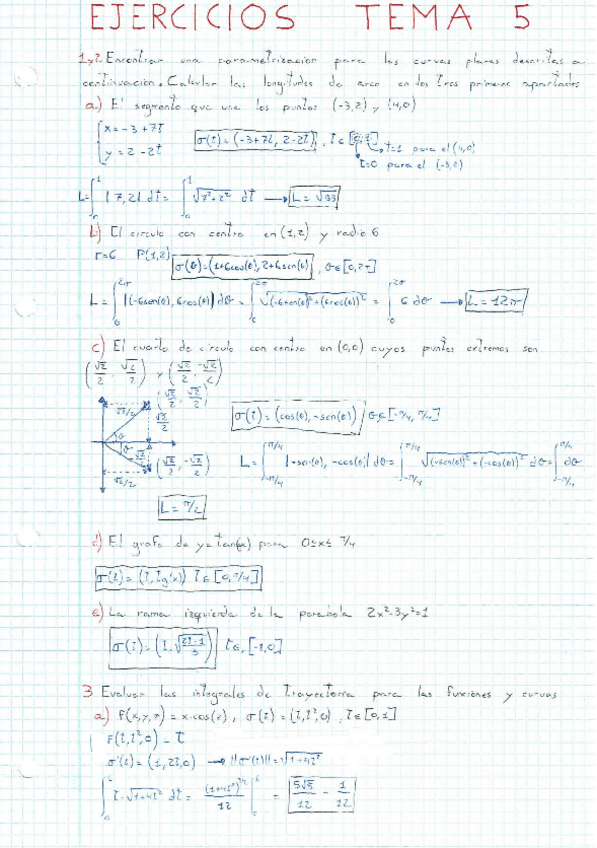 EJERCICIOS TEMA 5
1,2 Encontrar una parametrización para las curvas planas descritas a
continuación. Calcular las longitudes de arco en los tres primeros apartados
a) El segmento que une los puntos (-3,2) y (4,0)
x=-3+7t
y=2-2t
σ(t)=(-3+7t, 2-2t), t∈[0,1]
t=1 para el (4,0)
t=0 para el (-3,2)
L=∫₀¹ |7,2| dt = ∫₀¹ √7²+2² dt → L=√53
b) El circulo con centro en (1,2) y radio 6
r=6 P(1,2)
σ(θ)=(1+6cos(θ), 2+6sen(θ)), θ∈[0,2π]
L=∫₀^2π |(-6sen(θ), 6cos(θ)| dθ = ∫₀^2π √(-6sen(θ))²+(6cos(θ))² = ∫₀^2π 6 dθ → L=12π
c) El cuarto de circulo con centro en (0,0) cuyos puntos extremos son
(√2/2, √2/2) y (√2/2, -√2/2)
(√2/2, √2/2)
√2/2
√2/2
θ
θ
√2/2
√2/2
(√2/2, -√2/2)
σ(t)=(cos(θ), -sen(θ)) θ∈[-π/4, π/4]
L=∫_-π/4^π/4 |-sen(θ), -cos(θ)| dθ = ∫_-π/4^π/4 √(-sen(θ))²+(-cos(θ))² dθ = ∫_-π/4^π/4 dθ
L=π/2
d) El grafo de y=tan(x) para 0≤x≤π/4
σ(t)=(t, tg(x)) t∈[0,π/4]
e) La rama izquierda de la parabola 2x²-3y²=1
t∈[-1,0]
3 Evaluar las integrales de trayectoria para las funciones y curvas
a) f(x,y,z)=x·cos(z), σ(t)=(t,t²,0), t∈[0,1]
f(t,t²,0)=t
σ'(t)=(1,2t,0) → ||σ'(t)||=√1+4t²
∫₀¹ t·√1+4t² dt = (1+4t²)^3/2 / 12 |₀¹ = 5√5/12 - 1/12